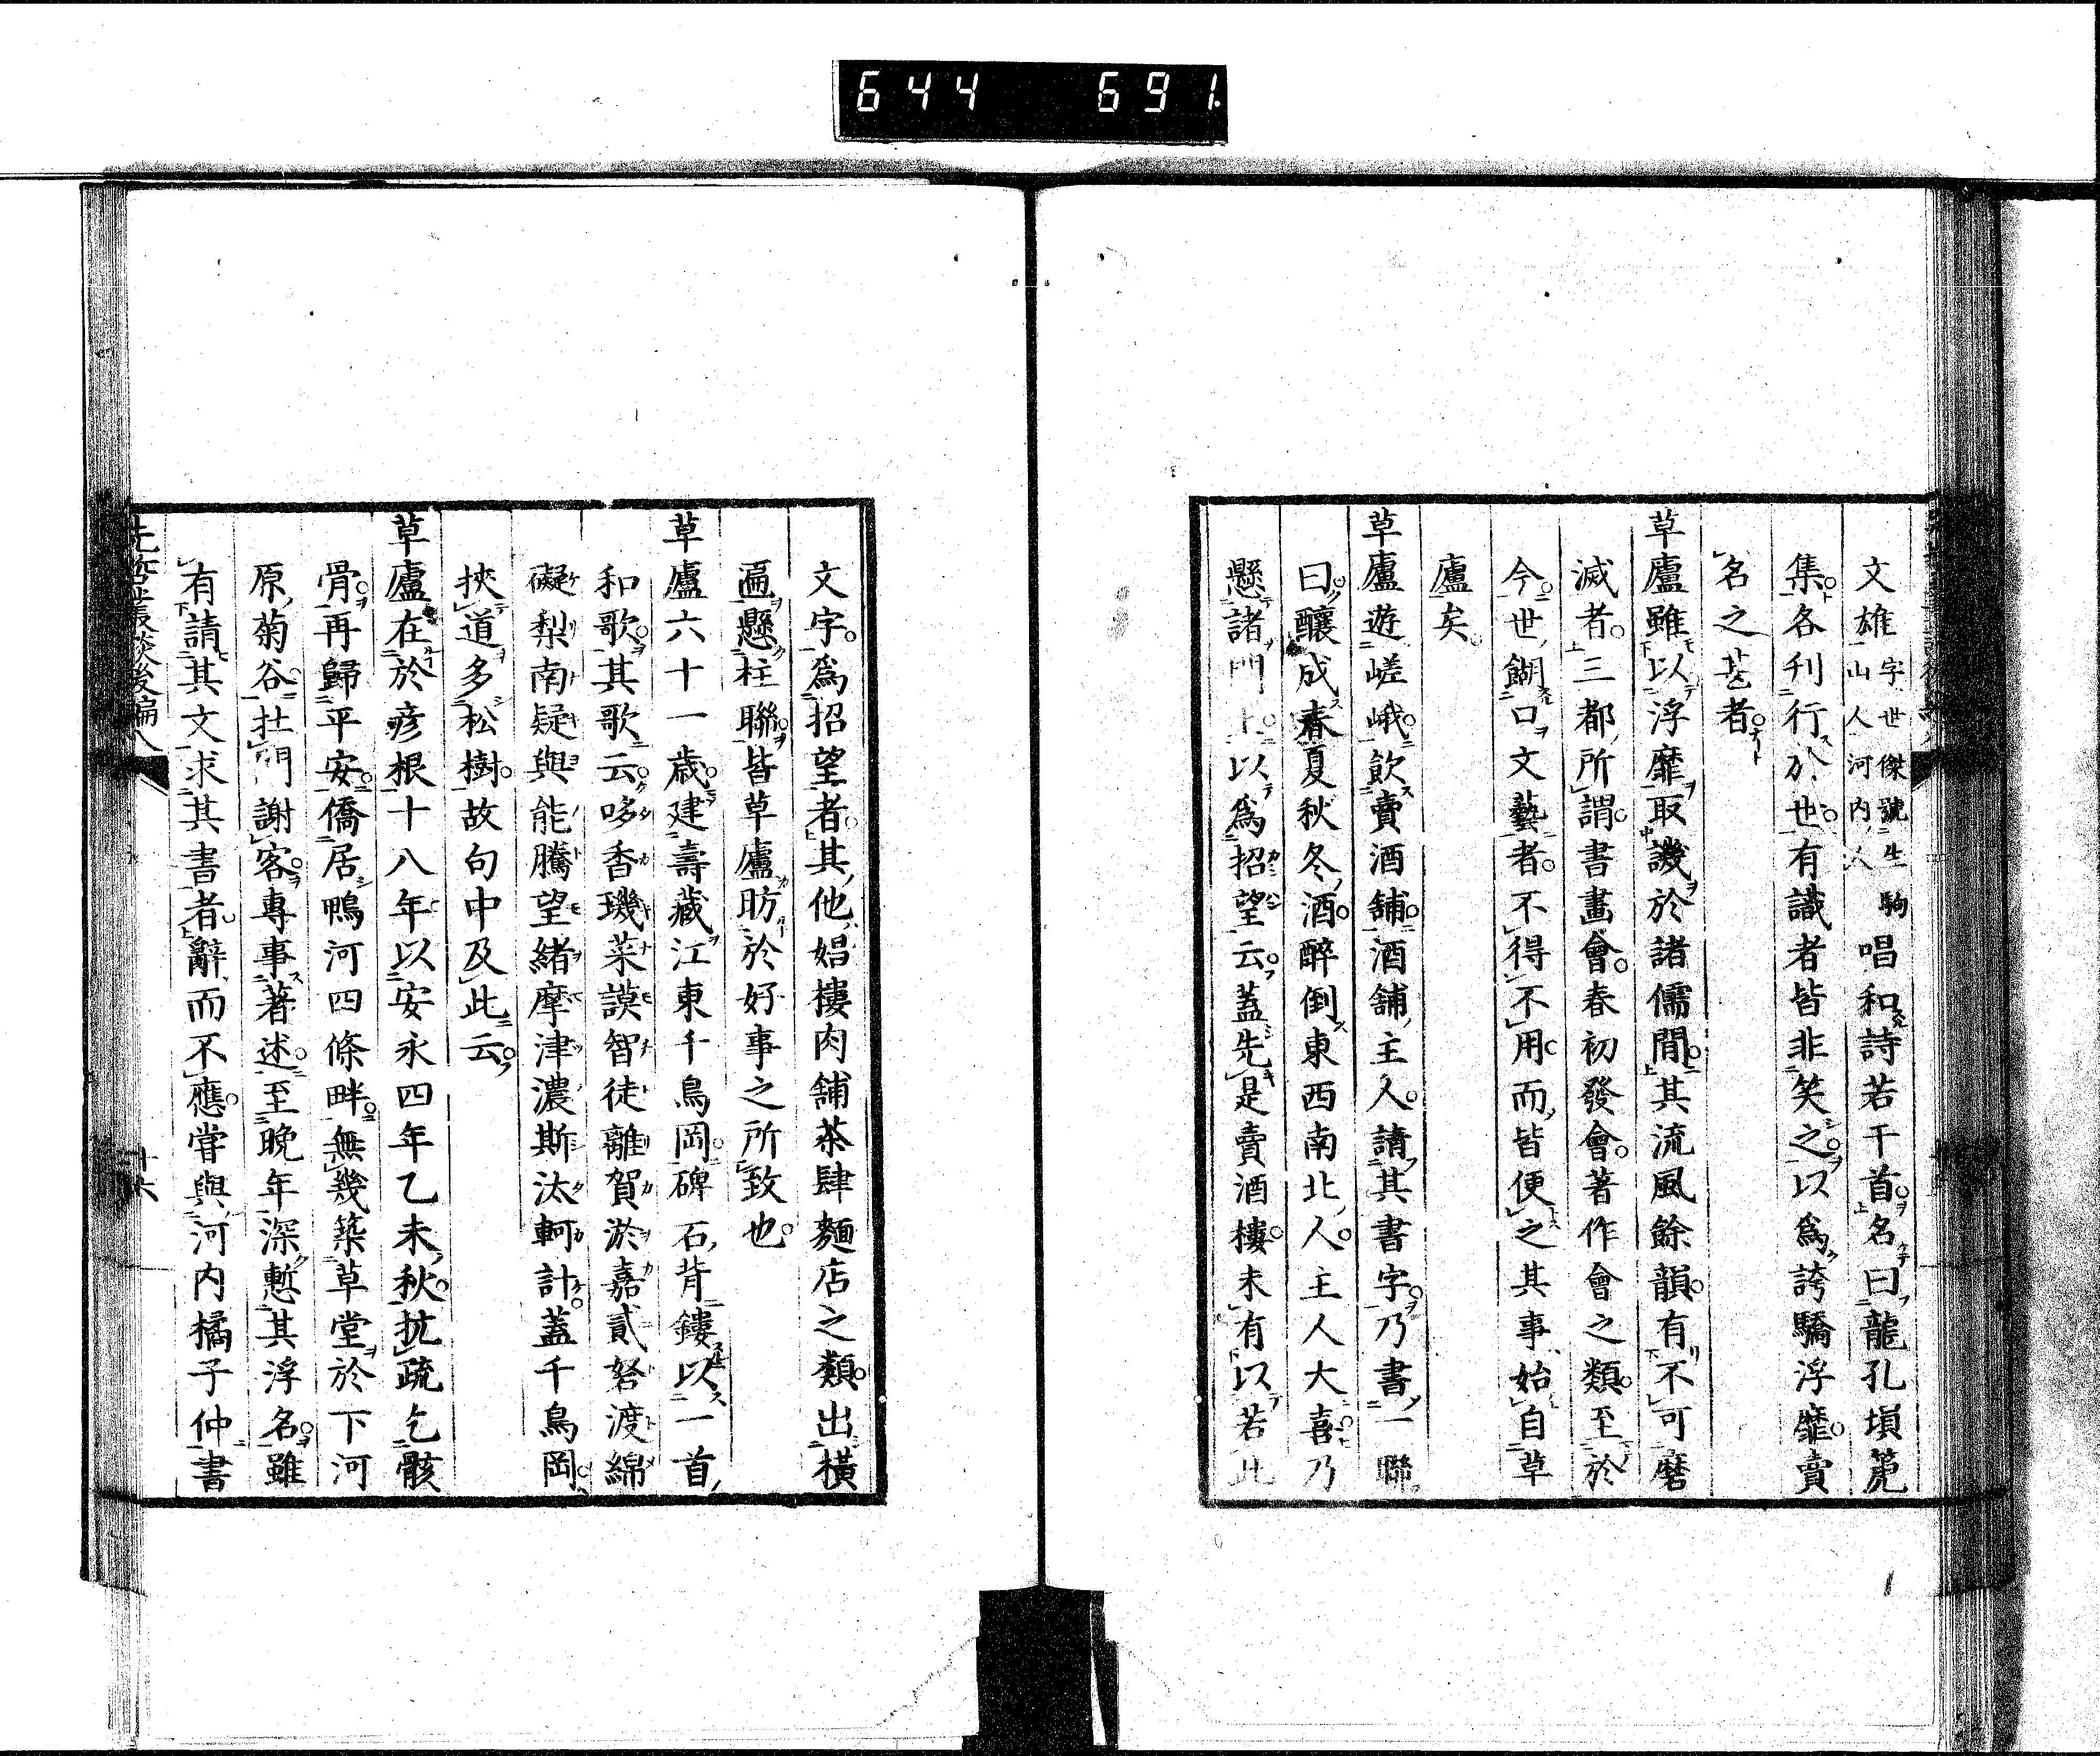 644 691.
文雄字世傑號生駒山人河内人唱和詩若干首名曰龍孔塤箎
集各刊行於世有識者皆非笑之以爲誇驕浮靡賣
名之甚者
草廬雖以浮靡取譏於諸儒間其流風餘韻有不可磨
滅者三都所謂書畫會春初發會著作會之類至於
今世餬口文藝者不得不用而皆便之其事始自草
廬矣
草廬遊嵯峨飲賣酒舖酒舖主人請其書字乃書一聯
曰釀成春夏秋冬酒醉倒東西南北人主人大喜乃
懸諸門上以爲招望云蓋先是賣酒樓未有以若此
文字爲招望者其他娼樓肉舖茶肆麵店之類出橫
匾懸柱聯皆草廬昉於好事之所致也
草廬六十一歳建壽藏江東千鳥岡碑石背鏤以一首
和歌其歌云哆香璣菜謨智徒離賀淤嘉貳砮渡綿
礙梨南疑與能騰望緒摩津濃斯汰軻計蓋千鳥岡
挾道多松樹故句中及此云
草廬在於彦根十八年以安永四年乙未秋抗疏乞骸
骨再歸平安僑居鴨河四條畔無幾築草堂於下河
原菊谷杜門謝客專事著述至晩年深慙其浮名雖
有請其文求其書者辭而不應嘗與河内橘子仲書
先哲叢談後編八
十六